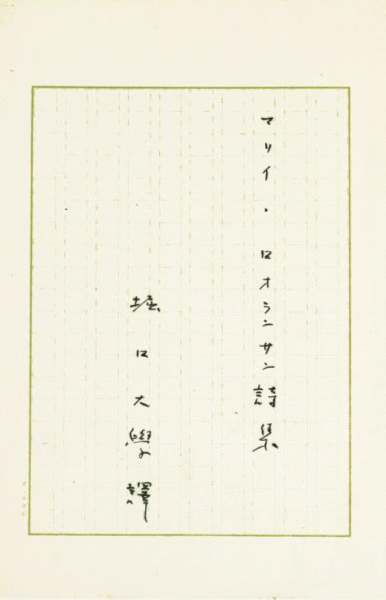 マリイ・ロオランサン詩集
堀口大學譯